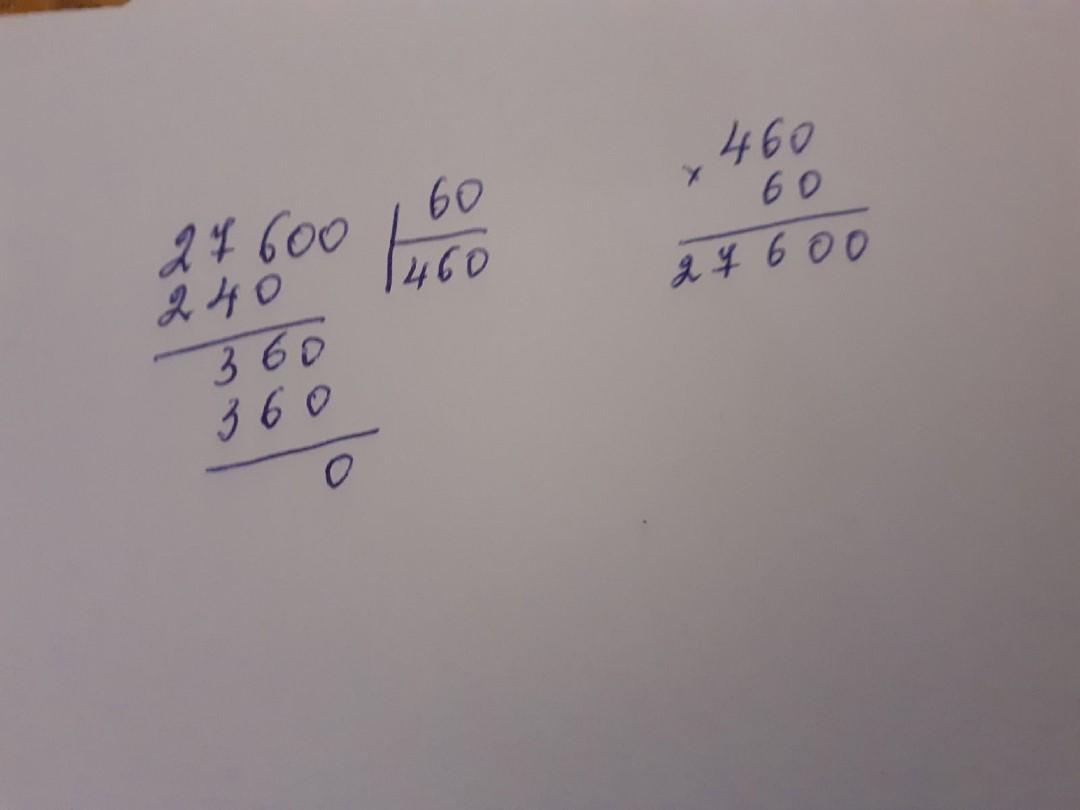 27600 | 60
240 | 460
360
360
0
× 460
60
27600